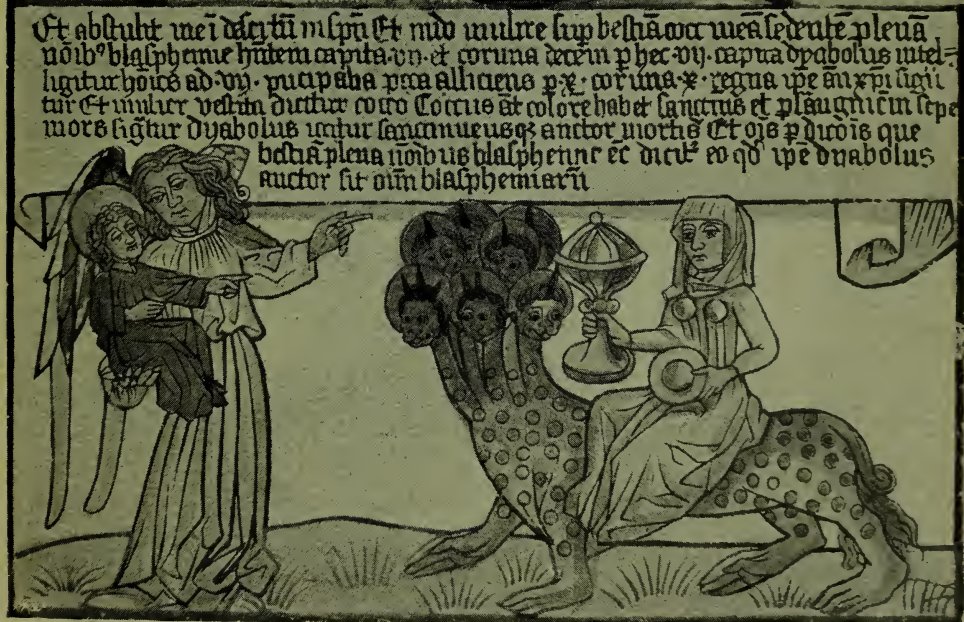 Et abstulit me ī dēsertū in spū Et vidi muliere sup bestiā cocc
nōibꝰ blasphemie hn̄tem capita·vij·et cornua decem p hec·vij·capita dyabolus intel=
ligitur hōīes ad·vij· pccā alliciens p·x·cornua·x·regna ip̄e an̄xp̄i sig
tur Et mulier vestita dicitur cocco Coccus at̄ colorē habet sanguinis et p sanguinē sepe
mors siḡtur dyabolus sanguineus anctor mortis Et
bestia plena nōibus blasphemie dicit̄ eo qd̄ ip̄e dyabolus
auctor sit oīm blasphemiarū